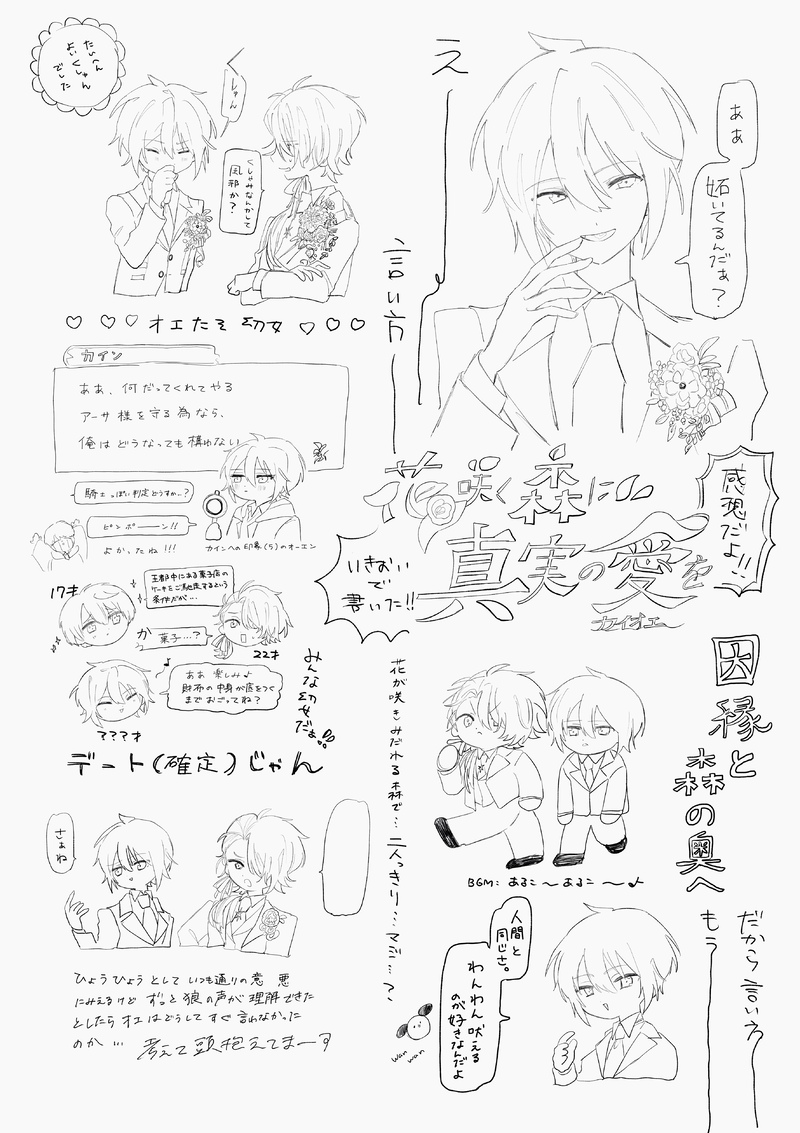 え
ああ
妬いてるんだぁ？
言い方
たいへん
よいくしゃん
でした
くしゃん
くしゃみなんかして
風邪か？
♡ ♡♡ オエたそ 幼女 ♡ ♡ ♡
カイン
ああ、何だってくれてやる
アーサー様を守る為なら、
俺はどうなっても構わない
騎士っぽい判定どうすか…?
ピンポーーーン!!
よかったね!!!
カインへの印象(5)のオーエン
感想だよ!!
花咲く森に
真実の愛を
カイオエ
いきおい
で
書いた!!
17才
王都中にある菓子店の
ケーキをご馳走するという
条件だが…
か
菓子…?
22才
ああ 楽しみ♪
財布の中身が底をつく
までおごってね？
???才
みんな幼女だぁ!!
デート(確定)じゃん
因縁と
森の奥へ
花が咲きみだれる森で…二人っきり…マジ…？
BGM: あるこ〜あるこ〜♪
さぁね
ひょうひょうとしていつも通りの意 悪
にみえるけど ずっと狼の声が理解できた
としたらオエはどうしてすぐ言わなかった
のか… 考えて頭抱えてまーす
だから言い方
もう
人間と
同じさ。
わんわん吠える
のが好きなんだよ
wan wan